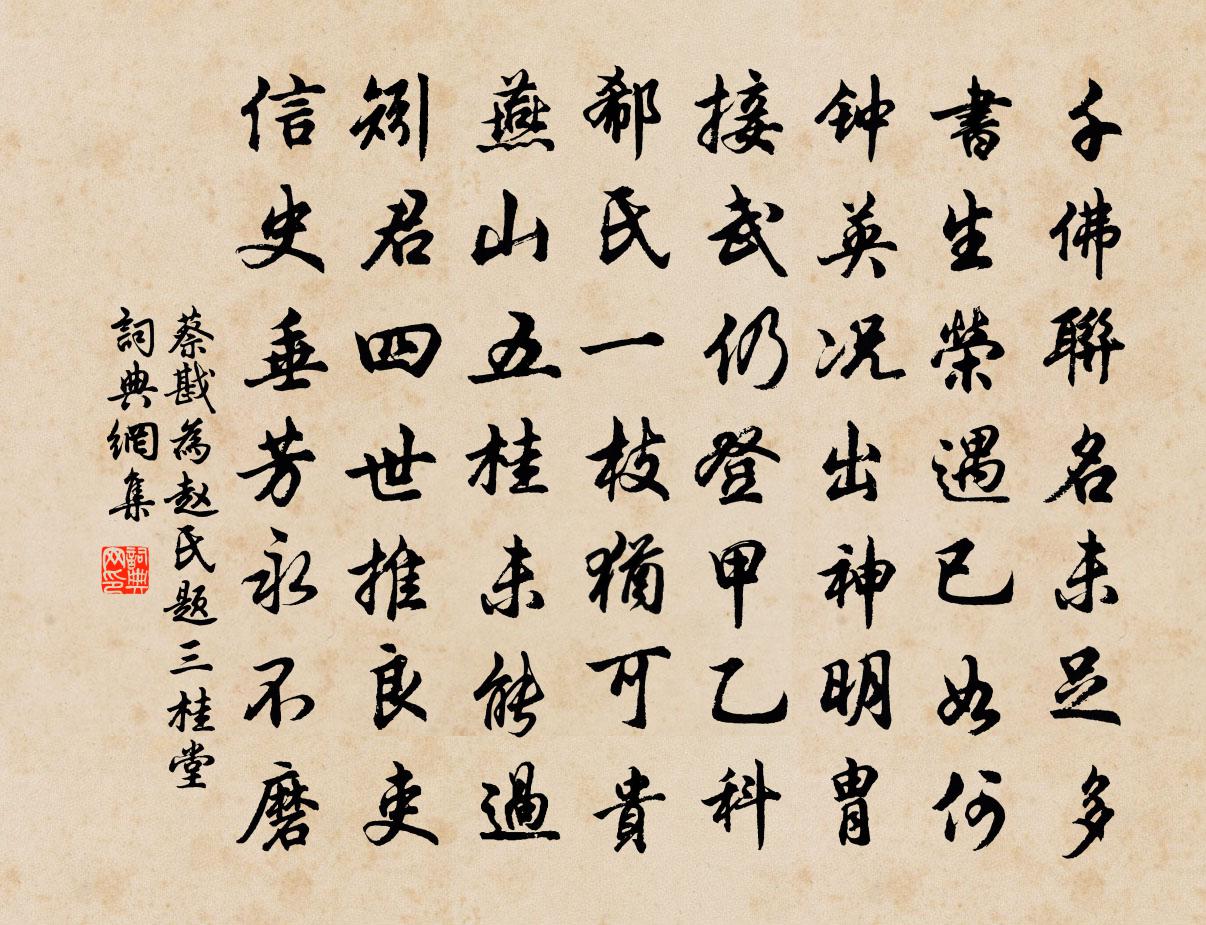 千佛聯名未足多
書生榮遇已如何
钟英况出神明胄
接武仍登甲乙科
郗氏一枝猶可貴
燕山五桂未能過
矧君四世推良吏
信史垂芳永不磨
蔡戡為趙氏題三桂堂
詞典網集
詞典网印